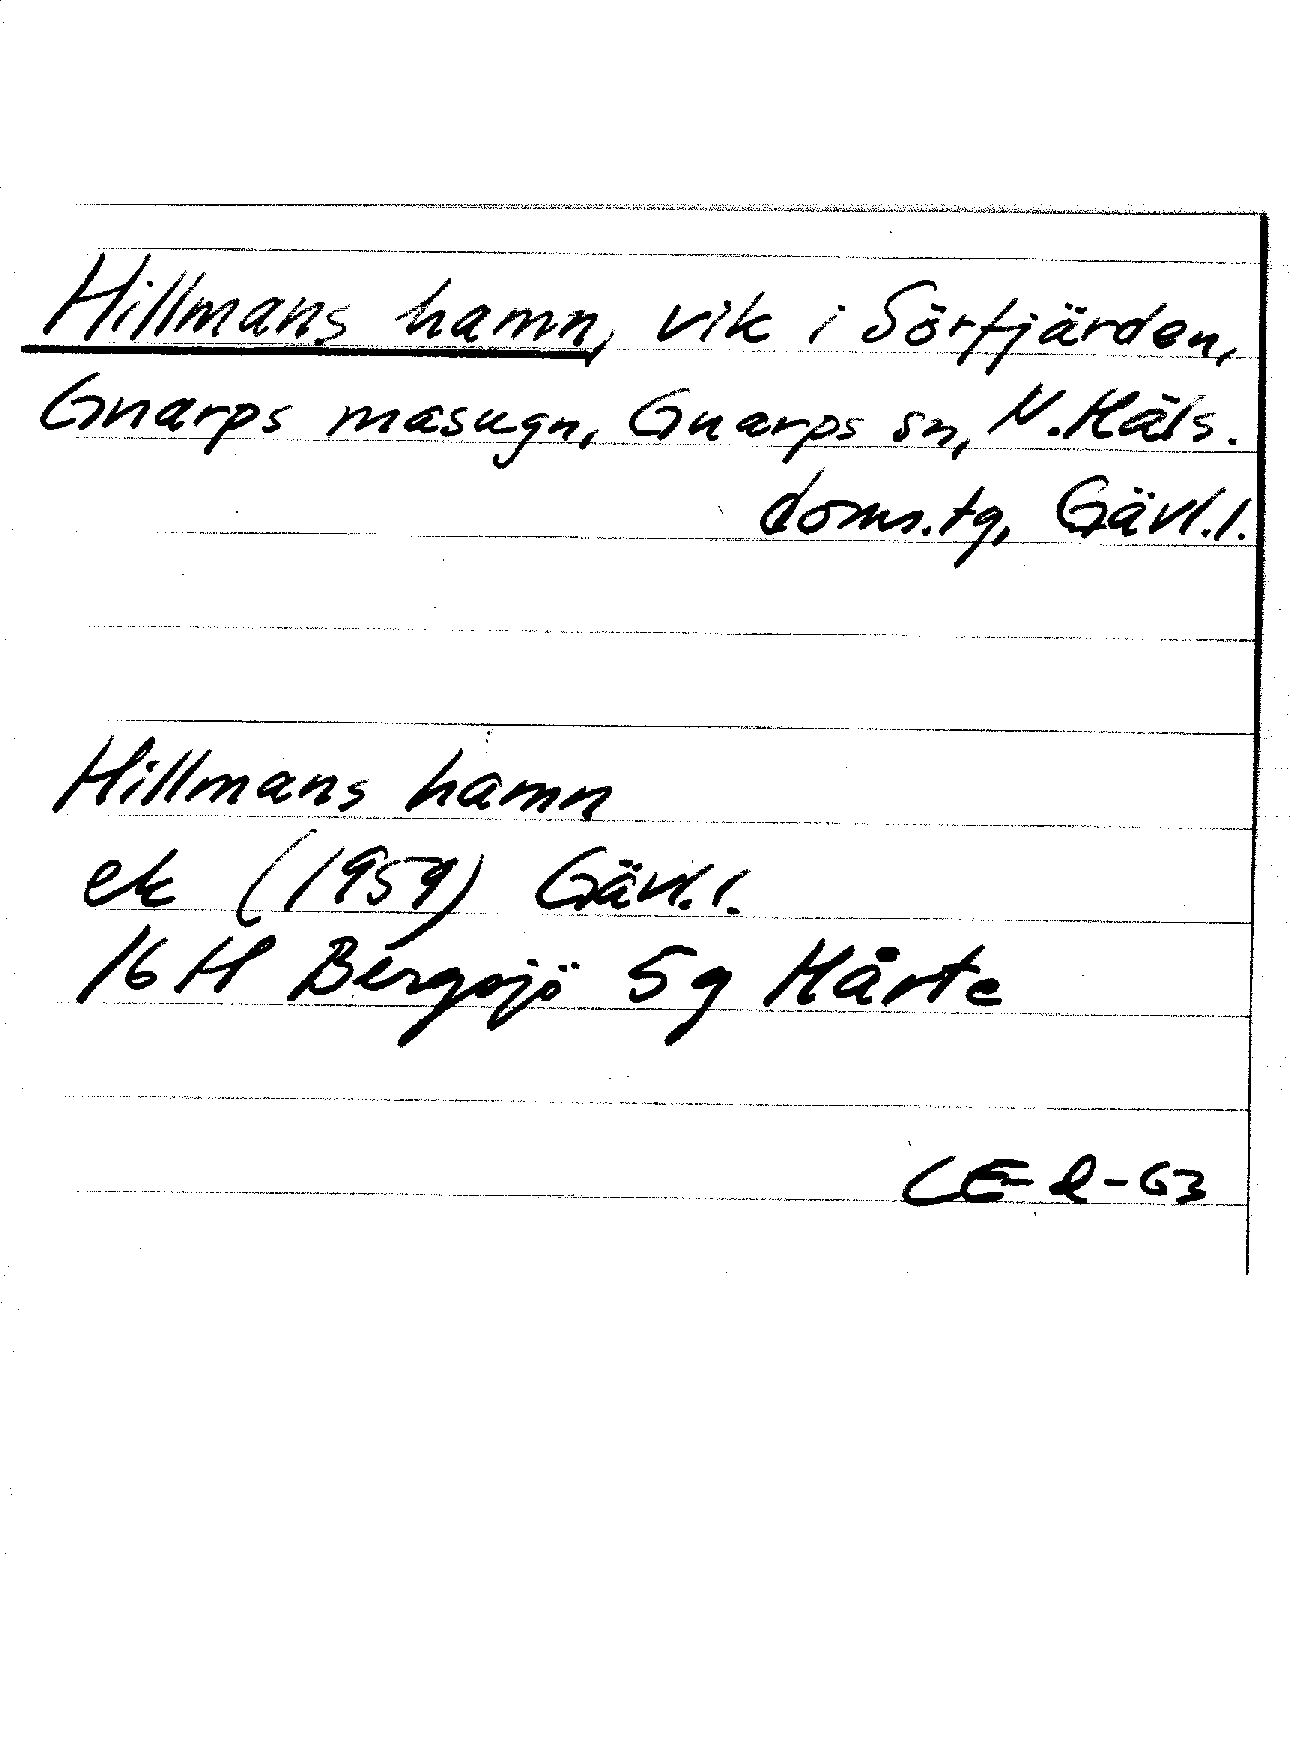 Hillmans hamn, vik i Sörfjärden,
Gnarps masugn, Gnarps sn, N. Häls.
doms.tg, Gävl.l.
Hillmans hamn
ek (1959) Gävl.l.
16 H Bergsjö 5g Hårte
CE-R-63